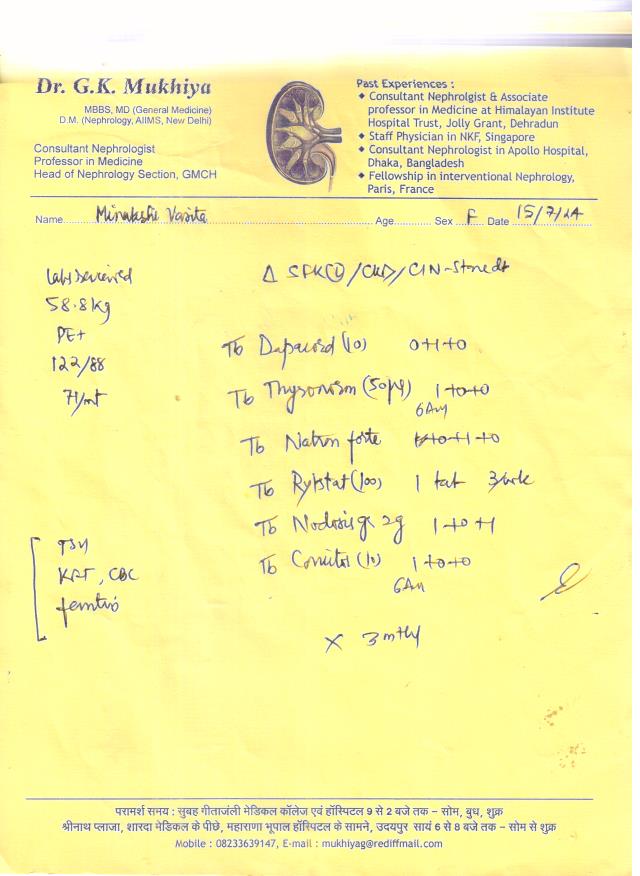 Dr. G.K. Mukhiya
MBBS, MD (General Medicine)
D.M. (Nephrology, AIIMS, New Delhi)
Consultant Nephrologist
Professor in Medicine
Head of Nephrology Section, GMCH
Past Experiences :
◆ Consultant Nephrolgist & Associate
professor in Medicine at Himalayan Institute
Hospital Trust, Jolly Grant, Dehradun
◆ Staff Physician in NKF, Singapore
◆ Consultant Nephrologist in Apollo Hospital,
Dhaka, Bangladesh
◆ Fellowship in interventional Nephrology,
Paris, France
Name Minakshi Age Sex F Date 15/7/24
Labs reviewed
Δ SFK /CKD/CIN-Stone dt
58.8kg
PE+
122/88
71/mt
Tb (10) 0+1+0
Tb (50µg) 1+0+0
6Am
Tb forte 0+1+0
Tb (100) 1 tab 3/wk
Tb Nodosis 1+0+1
Tb (10) 1+0+0
6Am
TSH
KFT, CBC
ferritin
x 3 mthly
परामर्श समय : सुबह गीतांजली मेडिकल कॉलेज एवं हॉस्पिटल 9 से 2 बजे तक – सोम, बुध, शुक्र
श्रीनाथ प्लाजा, शारदा मेडिकल के पीछे, महाराणा भूपाल हॉस्पिटल के सामने, उदयपुर सायं 6 से 8 बजे तक – सोम से शुक्र
Mobile : 08233639147, E-mail : mukhiyag@rediffmail.com